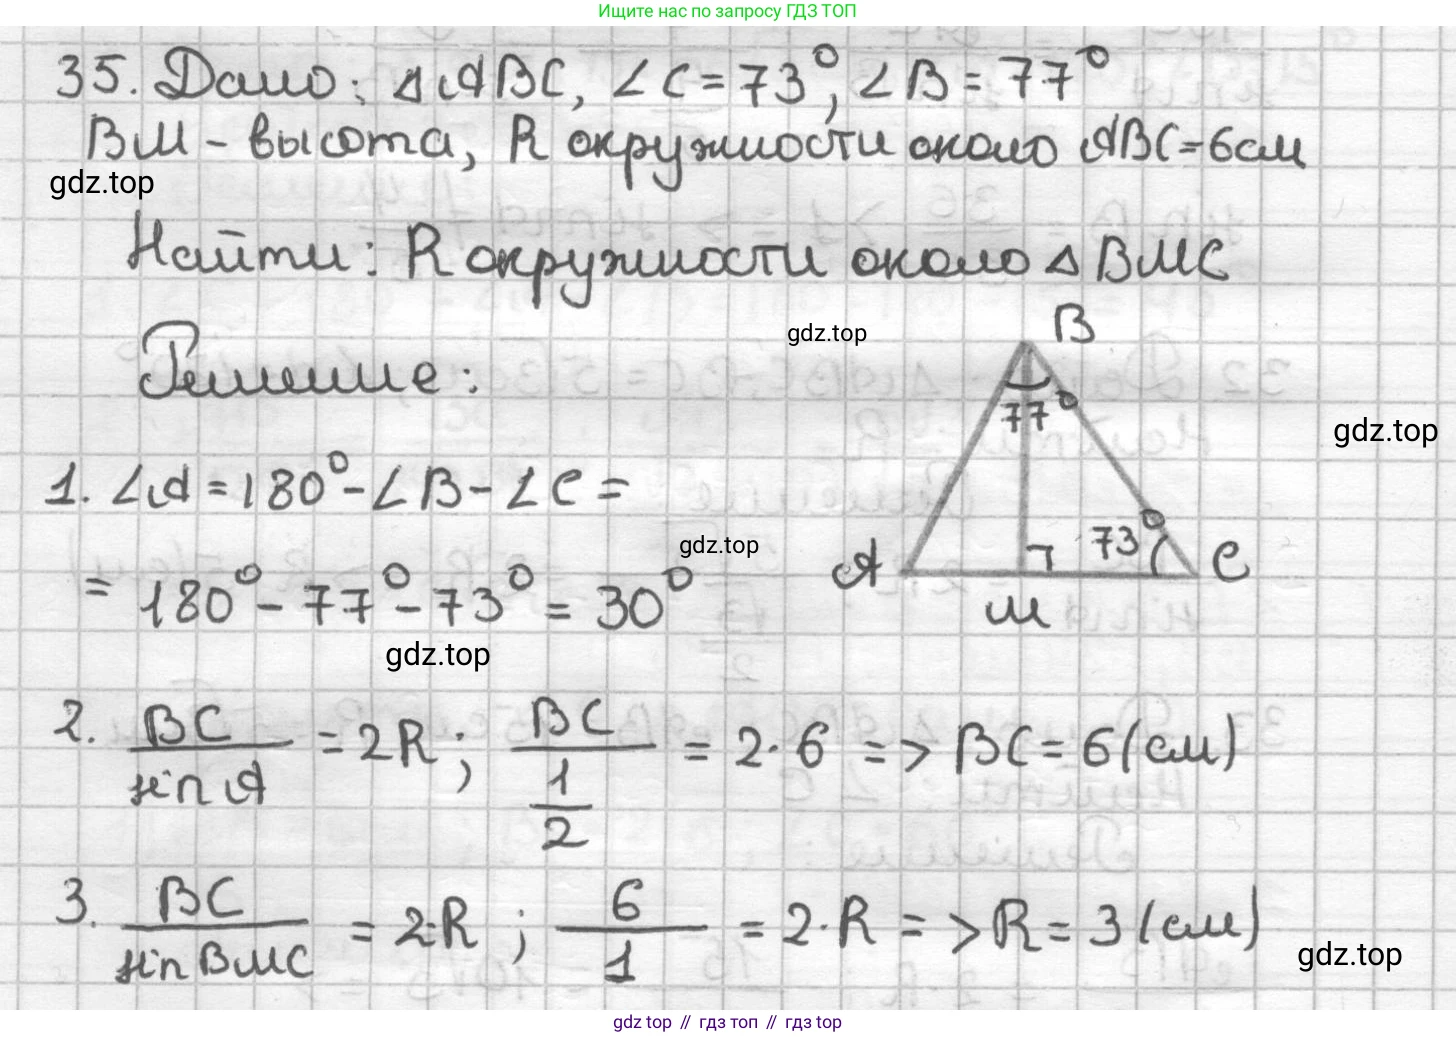 Ищите нас по запросу ГДЗ ТОП
35. Дано: △ABC, ∠C = 73°, ∠B = 77°
BM - высота, R окружности около ABC = 6см
gdz.top
Найти: R окружности около △ BMC
gdz.top
B
Решение:
77°
gdz.top
1. ∠A = 180° - ∠B - ∠C =
gdz.top
73°
A
C
M
= 180° - 77° - 73° = 30°
gdz.top
2. BC / sin A = 2R ; BC / (1/2) = 2 · 6 => BC = 6 (см)
3. BC / sin BMC = 2·R ; 6 / 1 = 2 · R => R = 3 (см)
gdz.top
gdz top // гдз топ // гдз top